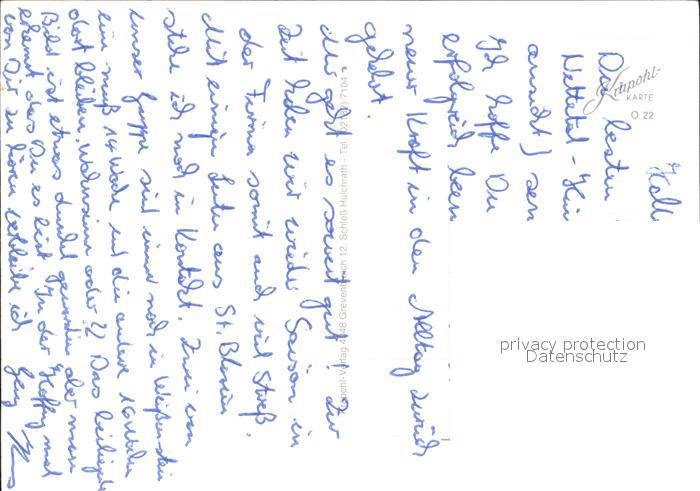 Hall
Die besten
Nettetal - Hin
Ich hoffe Du
erfolgreich
neuer Kraft in den Alltag zurück
gekehrt.
Mir geht es soweit gut! Zur
Zeit haben wir wieder Saison in
der Firma somit auch viel Streß.
Mit einigen Leuten aus St. Blasien
stehe ich noch in Kontakt. Zwei von
unser Gruppe sind immer noch in
ein muß 14 Woche und die andere 16 Wochen
dort bleiben, Wahnsinn oder !? Das beiliegende
Bild ist etwas dunkel geworden aber man
erkennt das Du es bist. In der Hoffnung mal
von Dir zu hören verbleibe ich
Krapohl-
KARTE
O 22
Krapohl-Verlag 4048 Grevenbroich 12, Schloß Hülchrath - Tel. 7104
privacy protection
Datenschutz